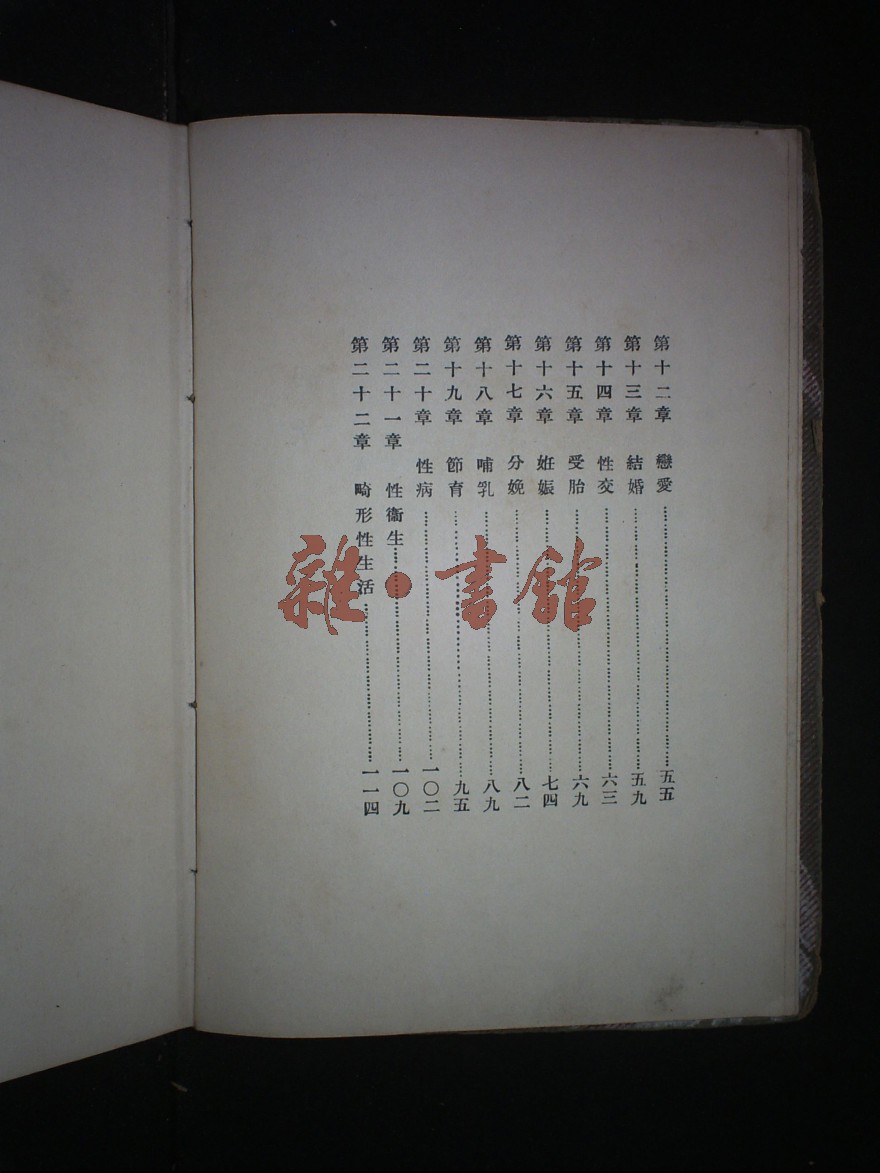 第十二章　戀愛……………………五五
第十三章　結婚……………………五九
第十四章　性交……………………六三
第十五章　受胎……………………六九
第十六章　妊娠……………………七四
第十七章　分娩……………………八二
第十八章　哺乳……………………八九
第十九章　節育……………………九五
第二十章　性病……………………一〇二
第二十一章　性衞生……………………一〇九
第二十二章　畸形性生活……………………一一四
雜·書館